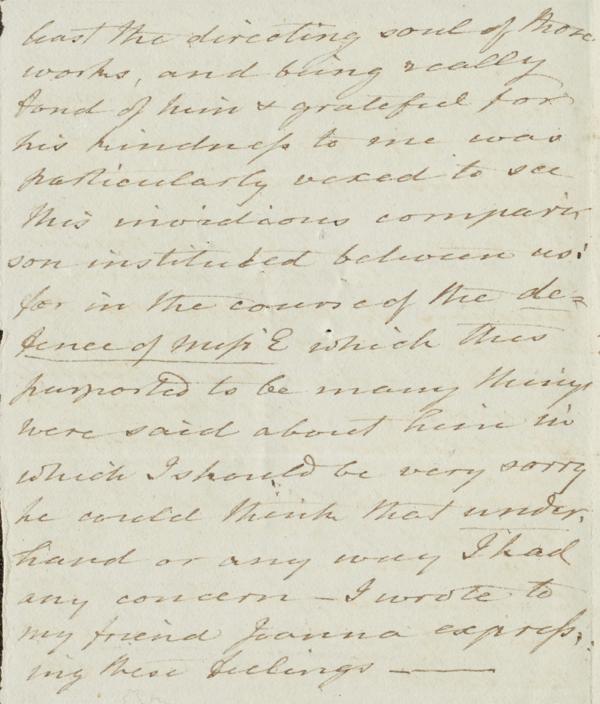 least the directing soul of those
works, and being really
fond of him & grateful for
his kindness to me was
particularly vexed to see
this invidious compari
son instituted between us:
for in the course of the de=
fence of Miss E which this
purported to be many things
were said about him in
which I should be very sorry
he could think that under,
hand or any way I had
any concern – I wrote to
my friend Joanna express,
ing these feelings —